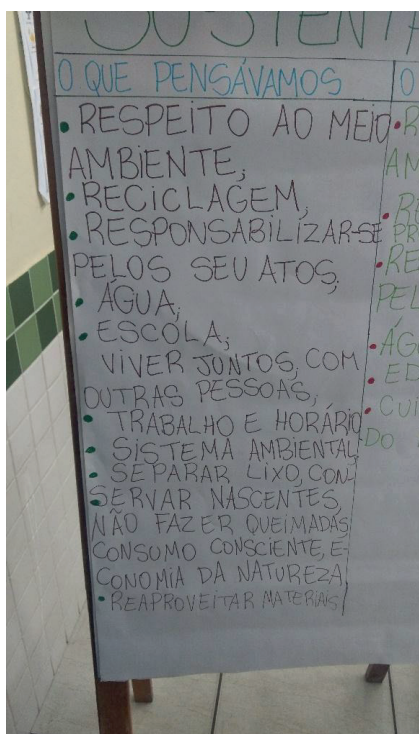 SUSTENTA
O QUE PENSÁVAMOS
• RESPEITO AO MEIO
AMBIENTE,
• RECICLAGEM,
• RESPONSABILIZAR-SE
PELOS SEU ATOS,
• ÁGUA,
• ESCOLA;
VIVER JUNTOS, COM
OUTRAS PESSOAS,
• TRABALHO E HORÁRIO
• SISTEMA AMBIENTAL,
• SEPARAR LIXO, CON-
SERVAR NASCENTES,
NÃO FAZER QUEIMADAS
CONSUMO CONSCIENTE, E-
CONOMIA DA NATUREZA,
• REAPROVEITAR MATERIAIS
O
• R
AM
• RE
PR
• RE
PEL
• ÁGU
• ED
• CUI
DO